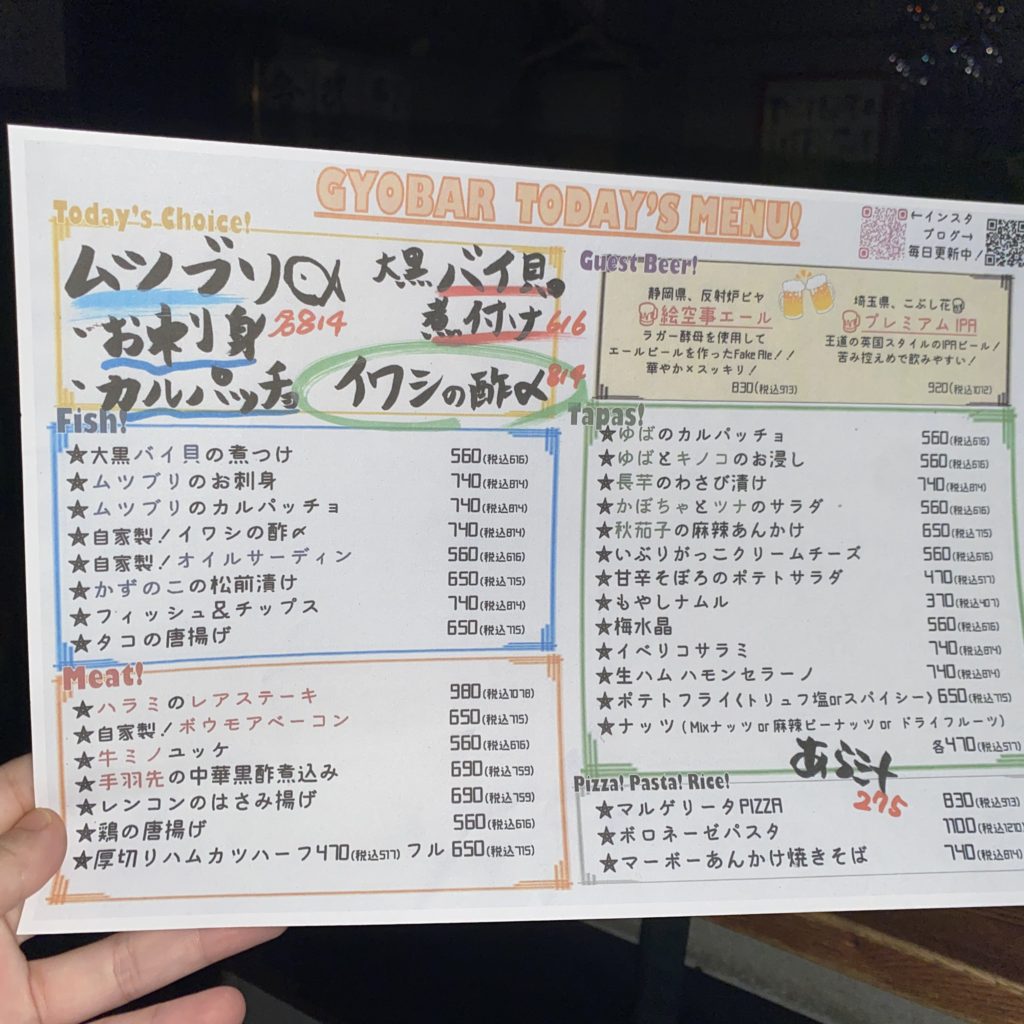 GYOBAR TODAY'S MENU!
←インスタ
ブログ→
毎日更新中!
Today's Choice!
ムツブリ
・お刺身 各814
・カルパッチョ
大黒バイ貝
煮付け 616
イワシの酢〆 814
Guest Beer!
静岡県、反射炉ビヤ
絵空事エール
ラガー酵母を使用して
エールビールを作ったFake Ale!!
華やか×スッキリ!
830(税込913)
埼玉県、こぶし花
プレミアムIPA
王道の英国スタイルのIPAビール!
苦み控えめで飲みやすい!
920(税込1012)
Fish!
★大黒バイ貝の煮つけ 560(税込616)
★ムツブリのお刺身 740(税込814)
★ムツブリのカルパッチョ 740(税込814)
★自家製!イワシの酢〆 740(税込814)
★自家製!オイルサーディン 560(税込616)
★かずのこの松前漬け 650(税込715)
★フィッシュ&チップス 740(税込814)
★タコの唐揚げ 650(税込715)
Meat!
★ハラミのレアステーキ 980(税込1078)
★自家製!ボウモアベーコン 650(税込715)
★牛ミノユッケ 560(税込616)
★手羽先の中華黒酢煮込み 690(税込759)
★レンコンのはさみ揚げ 690(税込759)
★鶏の唐揚げ 560(税込616)
★厚切りハムカツハーフ470(税込517) フル 650(税込715)
Tapas!
★ゆばのカルパッチョ 560(税込616)
★ゆばとキノコのお浸し 560(税込616)
★長芋のわさび漬け 740(税込814)
★かぼちゃとツナのサラダ 560(税込616)
★秋茄子の麻辣あんかけ 650(税込715)
★いぶりがっこクリームチーズ 560(税込616)
★甘辛そぼろのポテトサラダ 470(税込517)
★もやしナムル 370(税込407)
★梅水晶 560(税込616)
★イベリコサラミ 740(税込814)
★生ハム ハモンセラーノ 740(税込814)
★ポテトフライ(トリュフ塩orスパイシー) 650(税込715)
★ナッツ(Mixナッツ or 麻辣ピーナッツ or ドライフルーツ)
各470(税込517)
あら汁
275
Pizza! Pasta! Rice!
★マルゲリータPIZZA 830(税込913)
★ボロネーゼパスタ 1100(税込1210)
★マーボーあんかけ焼きそば 740(税込814)